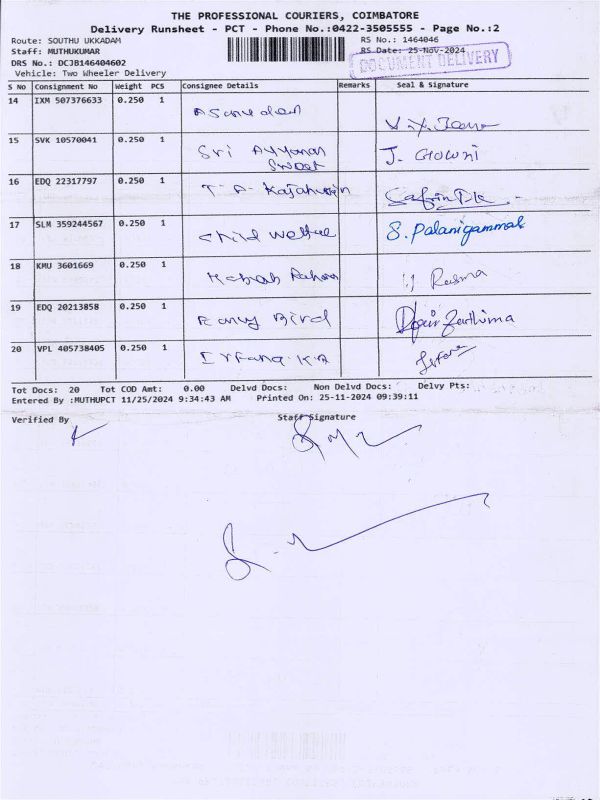 THE PROFESSIONAL COURIERS, COIMBATORE
Delivery Runsheet - PCT - Phone No.:0422-3505555 - Page No.:2
Route: SOUTHU UKKADAM RS No.: 1464046
Staff: MUTHUKUMAR RS Date: 25-Nov-2024
DOCUMENT DELIVERY
DRS No.: DCJB146404602
Vehicle: Two Wheeler Delivery
S No Consignment No Weight PCS Consignee Details Remarks Seal & Signature
14 IXM 507376633 0.250 1
15 SVK 10570041 0.250 1 Sri Ayyanar J. Gowni
Sweet
16 EDQ 22317797 0.250 1
17 SLM 359244567 0.250 1 S. Palaniyammal
18 KMU 3601669 0.250 1
19 EDQ 20213858 0.250 1 Bird
20 VPL 405738405 0.250 1
Tot Docs: 20 Tot COD Amt: 0.00 Delvd Docs: Non Delvd Docs: Delvy Pts:
Entered By :MUTHUPCT 11/25/2024 9:34:43 AM Printed On: 25-11-2024 09:39:11
Verified By Staff Signature